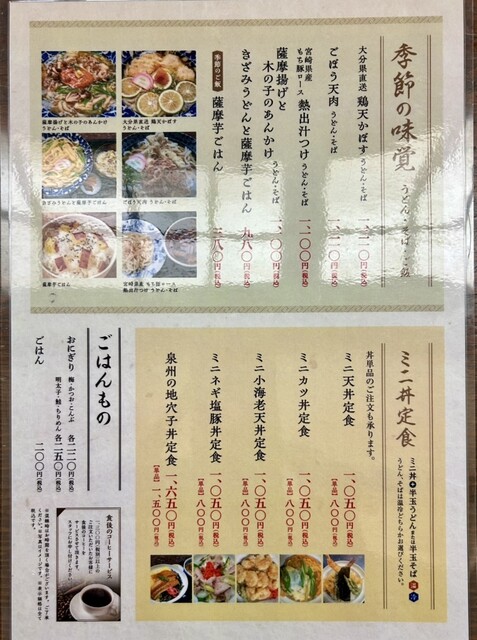 季節の味覚
うどん・そば・ご飯
大分県直送 鶏天かぼす うどん・そば
一、二一〇円(税込)
ごぼう天肉 うどん・そば
一、二一〇円(税込)
宮崎県産
もち豚ロース 熱出汁つけ うどん・そば
一、一〇〇円(税込)
薩摩揚げと
木の子のあんかけ うどん・そば
一、一〇〇円(税込)
きざみうどんと薩摩芋ごはん
九八〇円(税込)
季節のご飯 薩摩芋ごはん
三八〇円(税込)
薩摩揚げと木の子のあんかけ
うどん・そば
大分県直送 鶏天かぼす
うどん・そば
きざみうどんと薩摩芋ごはん
ごぼう天肉 うどん・そば
薩摩芋ごはん
宮崎県産 もち豚ロース
熱出汁つけ うどん・そば
ミニ丼定食
ミニ丼+半玉うどんまたは半玉そば 温 冷
うどん、そばは温冷どちらかお選びください。
丼単品のご注文も承ります。
ミニ天丼定食
一、〇五〇円(税込)
【単品】八〇〇円(税込)
ミニカツ丼定食
一、〇五〇円(税込)
【単品】八〇〇円(税込)
ミニ小海老天丼定食
一、〇五〇円(税込)
【単品】八〇〇円(税込)
ミニネギ塩豚丼定食
一、〇五〇円(税込)
【単品】八〇〇円(税込)
泉州の地穴子丼定食
一、六五〇円(税込)
【単品】一、五〇〇円(税込)
ごはんもの
おにぎり 梅・かつお・こんぶ 各一二〇円(税込)
明太子・鮭・ちりめん 各一五〇円(税込)
ごはん 二〇〇円(税込)
食後のコーヒーサービス